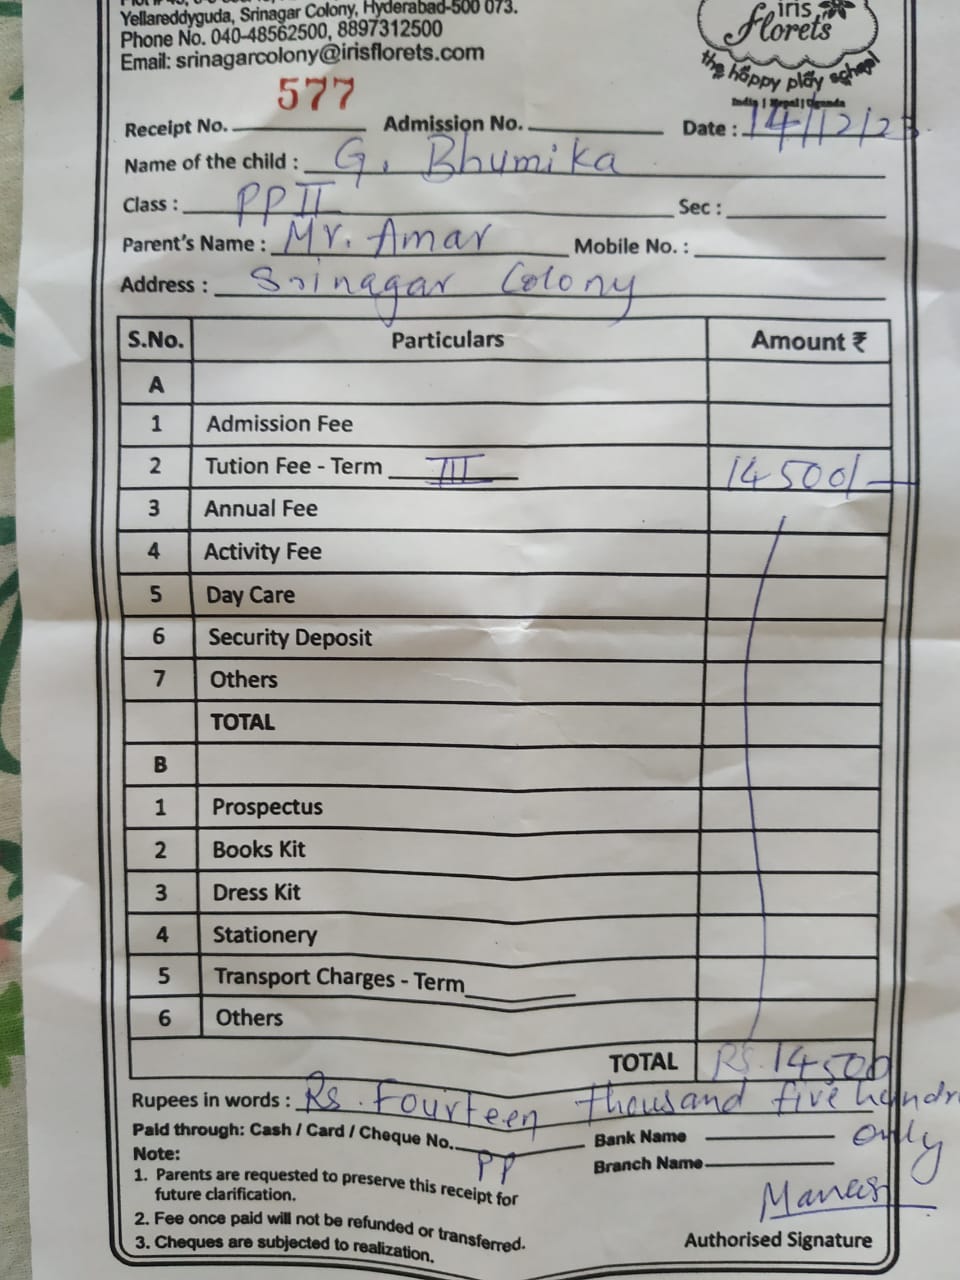 Yellareddyguda, Srinagar Colony, Hyderabad-500 073.
Phone No. 040-48562500, 8897312500
Email: srinagarcolony@irisflorets.com
iris
florets
the happy play school
India | Nepal | Uganda
577
Receipt No. Admission No. Date : 14/12/23
Name of the child : G. Bhumika
Class : PP II Sec :
Parent's Name : Mr. Amar Mobile No. :
Address : Srinagar Colony
S.No. Particulars Amount ₹
A
1 Admission Fee
2 Tution Fee - Term III 14500/-
3 Annual Fee
4 Activity Fee
5 Day Care
6 Security Deposit
7 Others
TOTAL
B
1 Prospectus
2 Books Kit
3 Dress Kit
4 Stationery
5 Transport Charges - Term
6 Others
TOTAL Rs. 14500
Rupees in words : Rs. Fourteen thousand five hundre
only
Paid through: Cash / Card / Cheque No. Bank Name
PP
Branch Name
Note:
1. Parents are requested to preserve this receipt for
future clarification.
2. Fee once paid will not be refunded or transferred.
3. Cheques are subjected to realization.
Authorised Signature